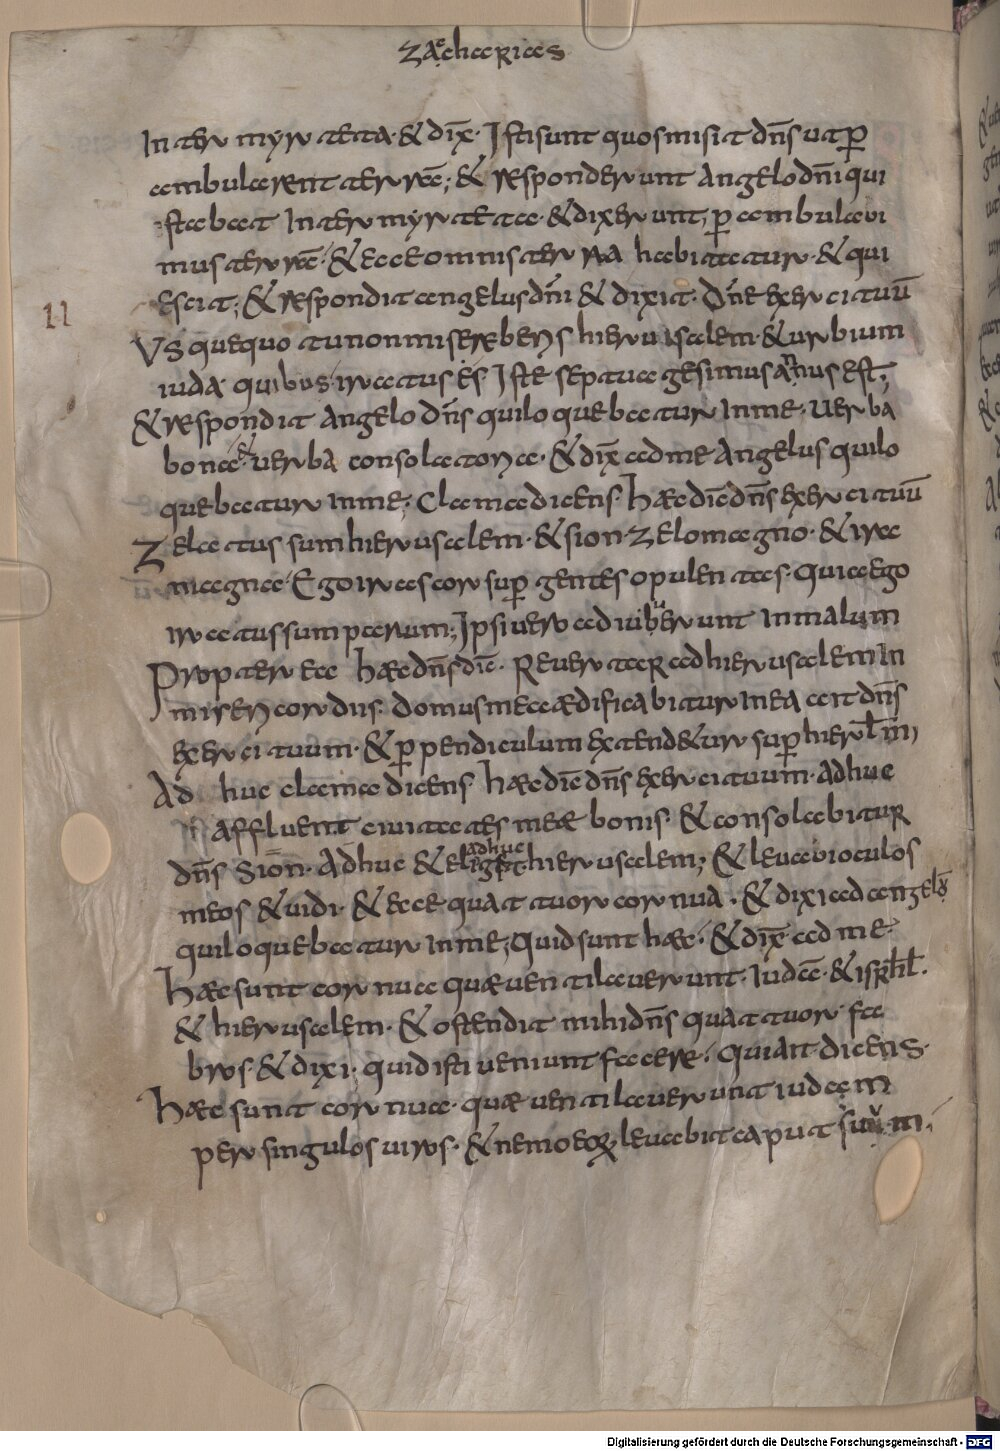 zachęrias
Inter myrteta · & dix̄ · Isti sunt quos misit dn̄s ut p̲
ambularent terrā; & responderunt angelo dn̄i qui
stabat Inter myrteta · & dixerunt, p̲ambulavi
mus terrā · & ecce omnis terra habitatur · & qui
escit; & respondit angelus dn̄i & dixit · Dn̄e exercituū
11
Vsquequo tu non misereberis hierusalem · & urbium
iuda quibus iratus ēs · Iste septuagesimus annus est;
& respondit angelo dn̄s qui loquebatur In me · uerba
bona & uerba consolatoria · & dix̄ ad me angelus qui lo
quebatur In me; Clama dicens · haec dic̄ dn̄s exercituū
Zelatus sum hierusalem · & sion zelo magno · & ira
magna · Ego irascor sup̲ gentes opulentas · Quia ego
iratus sum parum; Ipsi uero adiuuerunt In malum
Propterea haec dn̄s dic̄ · Reuertar ad hierusalem In
misericordiis · domus mea aedificabitur In ea ait dn̄s
exercituum · & p̲pendiculum extend&ur sup̲ hierl̄m,
Ad huc clama dicens · haec dic̄ dn̄s exercituum · adhuc
affluent ciuitates meae bonis · & consolabitur
dn̄s Sion · adhuc & eliget adhuc hierusalem; & leuaui oculos
meos & uidi · & ecce quattuor cornua · & dixi ad angels̄
qui loquebatur In me; Quid sunt haec · & dix̄ ad me ·
haec sunt cornua quae uentilauerunt · Iudā · & isrl̄ ·
& hierusalem · & ostendit mihi dn̄s quattuor fa
bros · & dixi · quid isti ueniunt facere · Qui ait dicens ·
haec sunt cornua · quae uentilauerunt iudam
per singulos uiros · & nemo eoꝝ leuabit caput suum ·
Digitalisierung gefördert durch die Deutsche Forschungsgemeinschaft - DFG